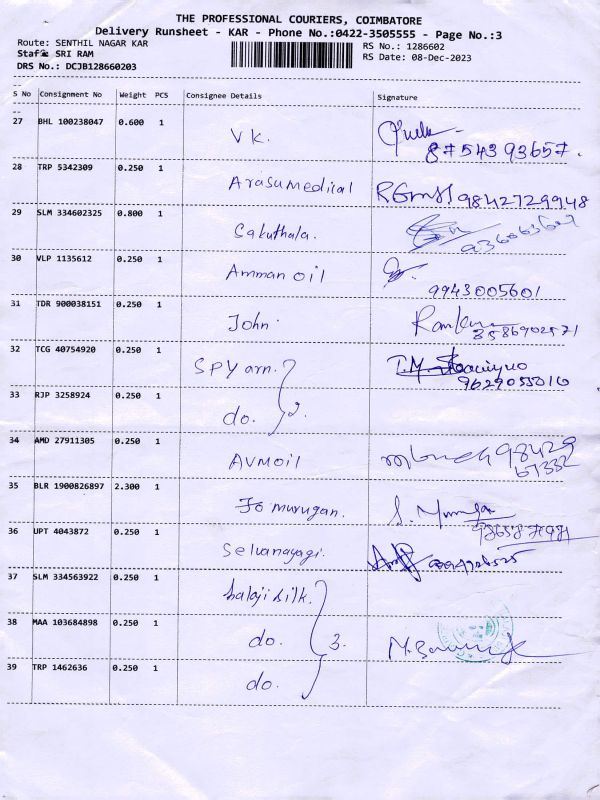 THE PROFESSIONAL COURIERS, COIMBATORE
Delivery Runsheet - KAR - Phone No.:0422-3505555 - Page No.:3
Route: SENTHIL NAGAR KAR
RS No.: 1286602
Staff: SRI RAM
RS Date: 08-Dec-2023
DRS No.: DCJB128660203
S No Consignment No Weight PCS Consignee Details Signature
27 BHL 100238047 0.600 1 VK.
8754393657.
28 TRP 5342309 0.250 1 Arasu medical 9842729948
29 SLM 334602325 0.800 1 Sakuthala.
30 VLP 1135612 0.250 1 Amman oil
9943005601
31 TDR 900038151 0.250 1 John
32 TCG 40754920 0.250 1 SPYarn.
9629055010
33 RJP 3258924 0.250 1 do. 2.
34 AMD 27911305 0.250 1 AVMoil 98429
67332
35 BLR 1900826897 2.300 1 murugan.
36 UPT 4043872 0.250 1 Selvanayagi.
37 SLM 334563922 0.250 1 balaji silk.
38 MAA 103684898 0.250 1 do. 3.
39 TRP 1462636 0.250 1 do.